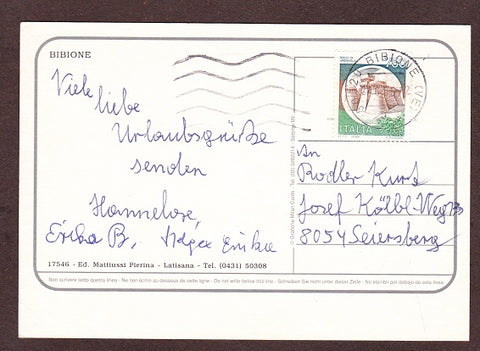 BIBIONE
Viele
liebe
Urlaubsgrüße
senden
Hannelore,
Erika B,
17546 - Ed. Mattiussi Pierina - Latisana - Tel. (0431) 50308
Non scrivere sotto questa linea - Ne rien écrire au-dessous de cette ligne - Do not write below this line - Schreiben Sie nicht unter dieser Zeile - No escribir por debajo de esta línea
BIBIONE (VE)
ITALIA
An
Rodler Kurt
Josef Kölbl-Weg
8054 Seiersberg